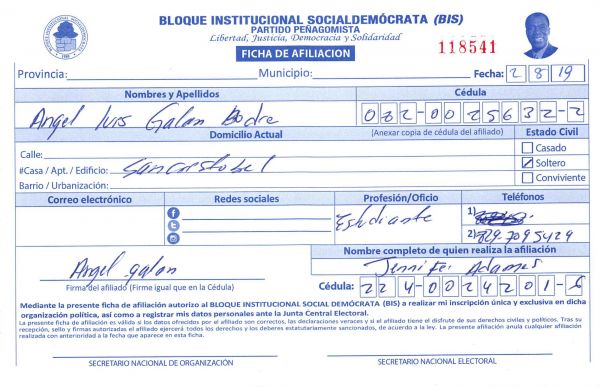 BLOQUE INSTITUCIONAL SOCIALDEMÓCRATA (BIS)
PARTIDO PEÑAGOMISTA
Libertad, Justicia, Democracia y Solidaridad
FICHA DE AFILIACION
118541
Provincia: Municipio: Fecha: 2 8 19
Nombres y Apellidos Cédula
Angel Luis Galan 082-0025632-2
Domicilio Actual (Anexar copia de cédula del afiliado) Estado Civil
Calle: Casado
#Casa / Apt. / Edificio: Sancristobal Soltero
Barrio / Urbanización: Conviviente
Correo electrónico Redes sociales Profesión/Oficio Teléfonos
Estudiante 1)
2) 829 7095429
Nombre completo de quien realiza la afiliación
Angel galan Jennifer Adames
Firma del afiliado (Firme igual que en la Cédula) Cédula: 224-0024201-6
Mediante la presente ficha de afiliación autorizo al BLOQUE INSTITUCIONAL SOCIAL DEMÓCRATA (BIS) a realizar mi inscripción única y exclusiva en dicha
organización política, así como a registrar mis datos personales ante la Junta Central Electoral.
La presente ficha de afiliación es válida si los datos ofrecidos por el afiliado son correctos, las declaraciones veraces y si el afiliado tiene el disfrute de sus derechos civiles y políticos. Tras su
recepción, sello y firmas autorizadas el afiliado ejercerá todos los derechos y deberes estatutariamente sancionados, de acuerdo a la ley. La presente afiliación anula cualquier afiliación
realizada con anterioridad a la fecha que aparece en esta ficha.
SECRETARIO NACIONAL DE ORGANIZACIÓN SECRETARIO NACIONAL ELECTORAL